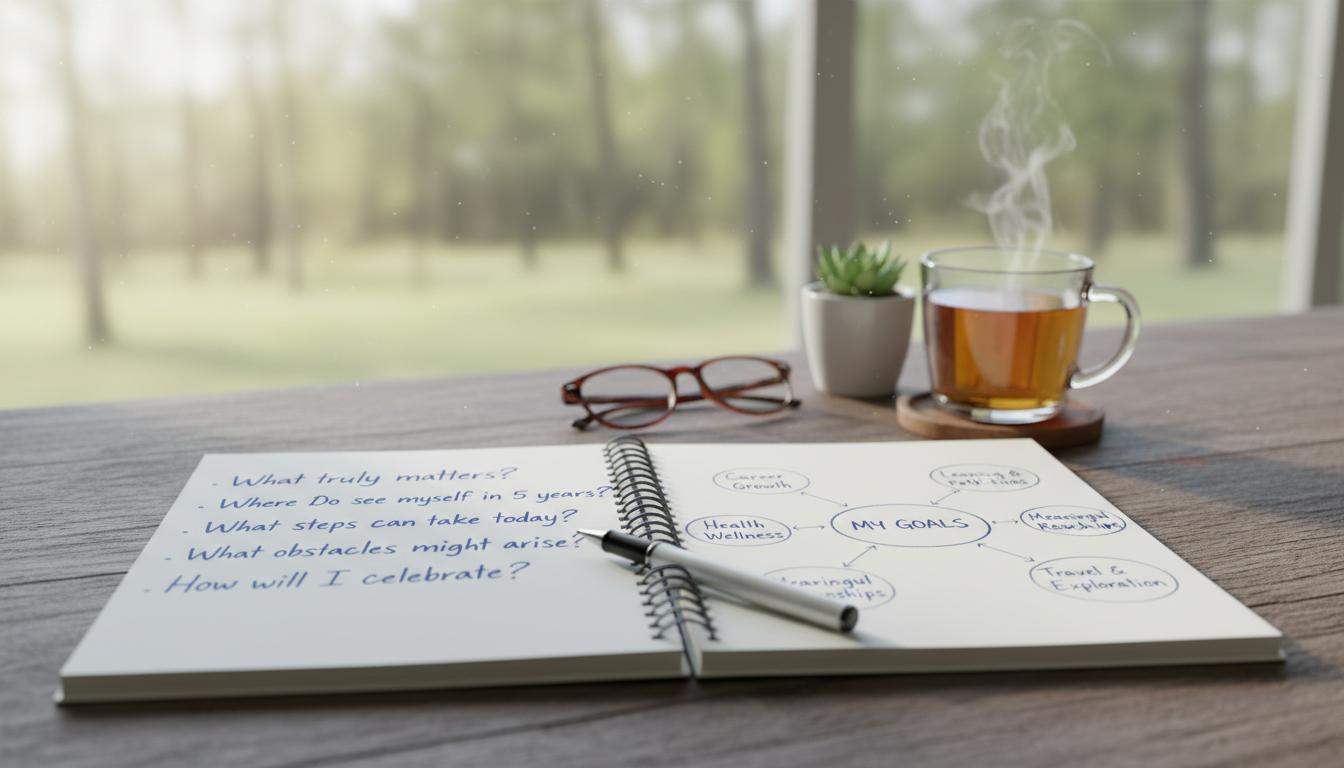 . What truly matters?
. Where Do see myself in 5 years?
. What steps can take today?
. What obstacles might arise?
. How will I celebrate?
Career
Growth
Health
Wellness
MY GOALS
Travel &
Exploration